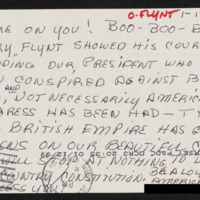 O-FLYNT 1-1
ME ON YOU! BOO-BOO-B
RY FLYNT SHOWED HIS COUR
DING OUR PRESIDENT WHO
N CONSPIRED AGAINST B
AND
, NOT NECESSARILY AMERICA
RESS HAS BEEN HAD - T
BRITISH EMPIRE HAS
ONS ON OUR BEAUTIFUL C
WILL STOP AT NOTHING TO
COUNTRY CONSTITUTION. BE A LOY
ESS YOU! AMERICA